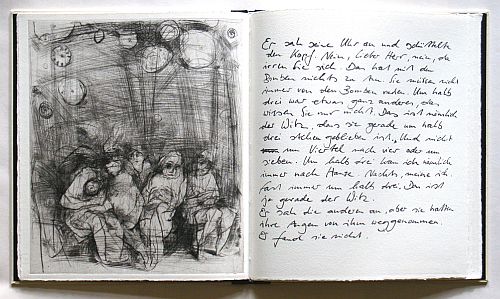 Er sah seine Uhr an und schüttelte
den Kopf. Nein, lieber Herr, nein, da
irren Sie sich. Das hat mit den
Bomben nichts zu tun. Sie müssen nicht
immer von den Bomben reden. Um halb
drei war etwas ganz anderes, das
wissen Sie nur nicht. Das ist nämlich
der Witz, dass sie gerade um halb
drei stehen geblieben ist. Und nicht
um Viertel nach vier oder um
sieben. Um halb drei kam ich nämlich
immer nach Hause. Nachts, meine ich.
Fast immer um halb drei. Das ist
ja gerade der Witz.
Er sah die anderen an, aber sie hatten
ihre Augen von ihm weggenommen.
Er fand sie nicht.